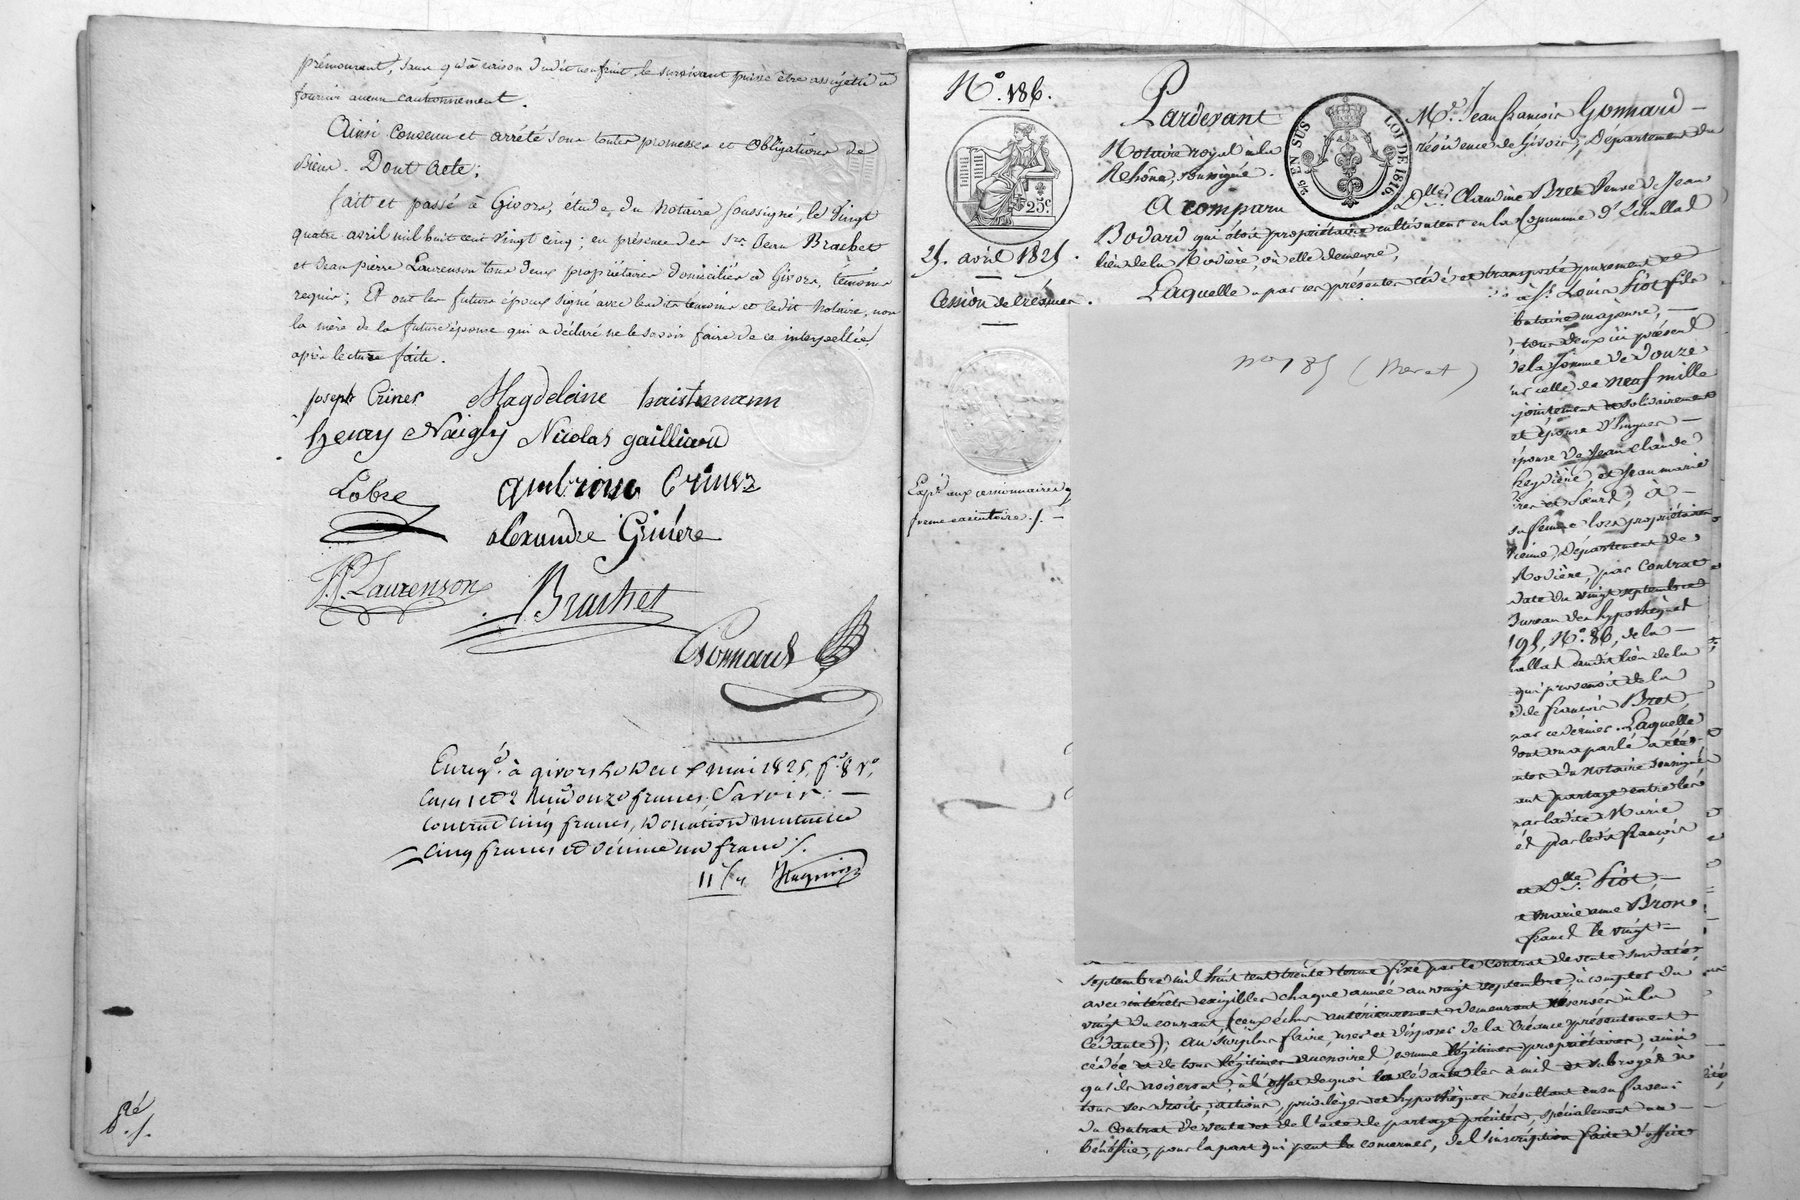 prémourant, sans qu'à raison dudit usufruit, le survivant puisse être assujetti à
fournir aucun cautionnement.
Ainsi convenu et arrêté sous toutes promesses et obligations de
Bien. Dont Acte;
fait et passé à Givors, étude du Notaire soussigné, le Vingt
quatre avril mil huit cent vingt cinq; en présence des Srs Jean Brachet
et Jean pierre Laurenson tous deux propriétaires domiciliés à Givors, témoins
requis; Et ont les future époux signé avec lesdits témoins et ledit Notaire, non
la mère de la future épouse qui a déclaré ne le savoir faire de ce interpellée,
après lecture faite.
joseph Criner Magdeleine haistmann
henry Naigly Nicolas gailliard
Lobre ambroise Criner
alexandre Grinére
J. P. Laurenson Brachet
Gonnard
Enregé. à givors le deux mai 1825, f.o 8 r.o,
Cases 1 et 2 Reçu onze francs, Savoir: —
Contrat cinq francs, Donation mutuelle
cinq francs et décime un franc ./.
11 f
N.o 186.
25. avril 1825.
Cession de créances.
Expé. aux cessionnaires
forme exécutoire ./. —
25c.
5c EN SUS LOI DE 1816.
Pardevant Me. Jean françois Gonnard —
Notaire royal à la résidence de Givors, Département du
Rhône, soussigné.
A comparu Dlle. Claudine Bret Veuve de Jean
Bodard qui étoit propriétaire cultivateur en la Commune d'Echallas
lieu de la Rodière, où elle demeure,
Laquelle a par ces présentes cédé et transporté purement et
à Sr. Louis fiot fils
majeure, —
tous deux ici présent
de la Somme de Douze
celle de neuf mille
jointement et solidairement
et épouse d'hugues —
épouse de Jean Claude
et Jean marie
et Sœurs, à —
sa femme lors propriétaires
Département de
Rodière, par Contrat
date du vingt septembre
Bureau des hypothèques
195, N.o 86, de la —
audit lieu de la
qui provenoit de la
de françois Bret,
par ce dernier. Laquelle
dont on a parlé a été
du Notaire soussigné
partage entre les
par ladite Marie
et par ledit françois
et Dlle. fiot, —
marie anne Bron
le vingt —
no 185 (Merat)
septembre mil huit cent trente terme fixé par le Contrat de vente susdaté,
avec intérêts exigibles chaque année au vingt septembre, à compter du
vingt du courant, (ceux échus antérieurement demeurant réservés à la
Cédante); au surplus faire, user et disposer de la Créance présentement
cédée et de tous légitimes accessoires comme légitimes propriétaires, ainsi
qu'ils aviseront; à l'effet de quoi la cédante les a mis et subrogés à
tous ses droits, actions, privilèges et hypothèques résultant en sa faveur
du Contrat de vente et de l'acte de partage précités, spécialement au —
bénéfice, pour la part qui peut la concerner, de l'inscription faite d'office